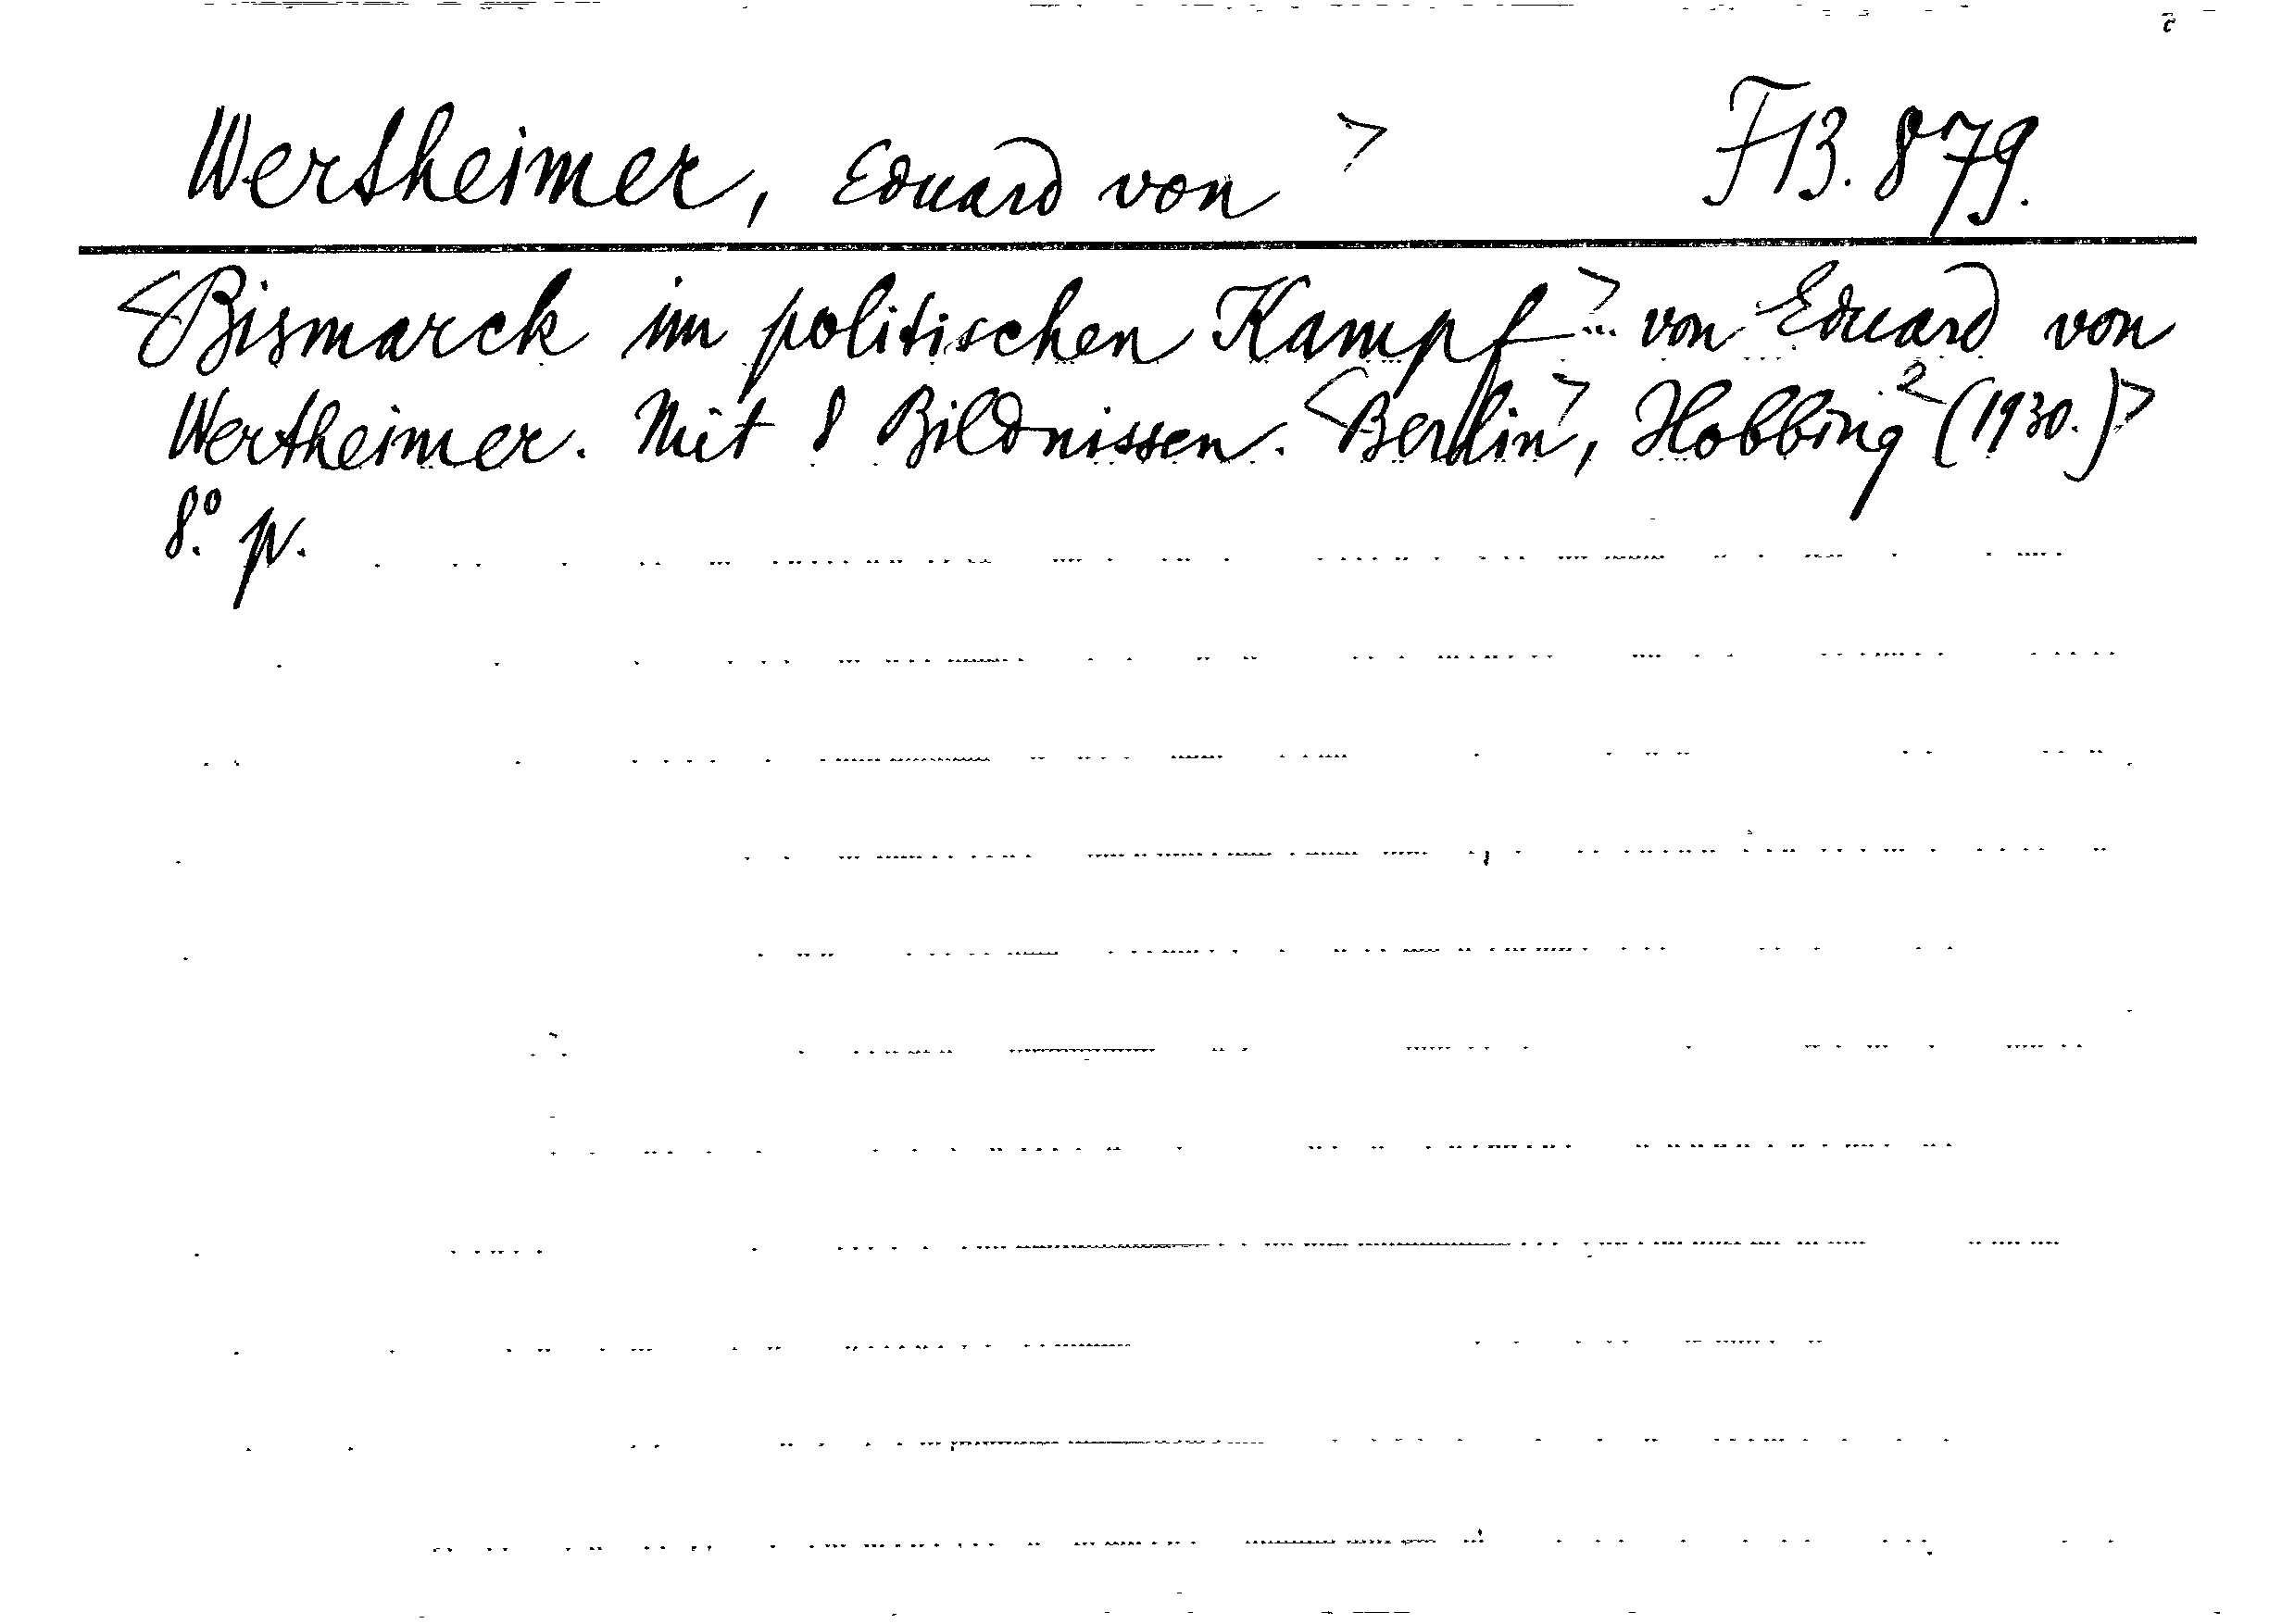 Wertheimer, Eduard von > FB. 879.
<Bismarck im politischen Kampf> ... von Eduard von
Wertheimer. Mit 8 Bildnissen. <Berlin>, Hobbing <(1930.)>
8.° p.